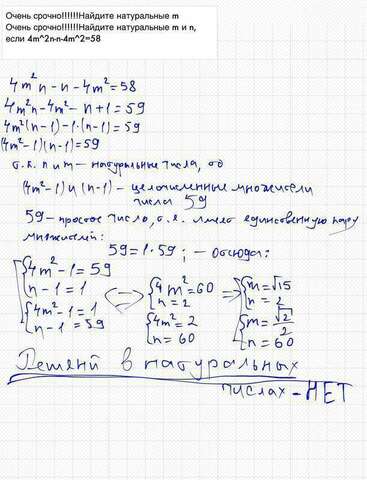 Очень срочно!!!!!!Найдите натуральные m
Очень срочно!!!!!!Найдите натуральные m и n,
если 4m^2n-n-4m^2=58
4m²n-n-4m²=58
4m²n-4m²-n+1=59
4m²(n-1)-1·(n-1)=59
(4m²-1)(n-1)=59
т.к. n и m - натуральные числа, то
(4m²-1) и (n-1) - целочисленные множители
числа 59
59 - простое число, т.е. имеет единственную пару
множителей:
59=1·59; - Отсюда:
{4m²-1=59 {4m²=60 {m=√15
n-1=1 <=> n=2 => n=2
{4m²-1=1 {4m²=2 {m=√2/2
n-1=59 n=60 n=60
Решений в натуральных
числах - НЕТ